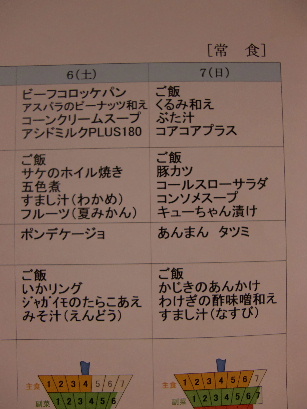 [常 食]
6(土)
7(日)
ビーフコロッケパン
アスパラのピーナッツ和え
コーンクリームスープ
アシドミルクPLUS180
ご飯
くるみ和え
ぶた汁
コアコアプラス
ご飯
サケのホイル焼き
五色煮
すまし汁(わかめ)
フルーツ(夏みかん)
ご飯
豚カツ
コールスローサラダ
コンソメスープ
キューちゃん漬け
ポンデケージョ
あんまん タツミ
ご飯
いかリング
ジャガイモのたらこあえ
みそ汁(えんどう)
ご飯
かじきのあんかけ
わけぎの酢味噌和え
すまし汁(なすび)
主食 1 2 3 4 5 6 7
副菜 1 2 3 4 5 6
主食 1 2 3 4 5 6 7
副菜 1 2 3 4 5 6